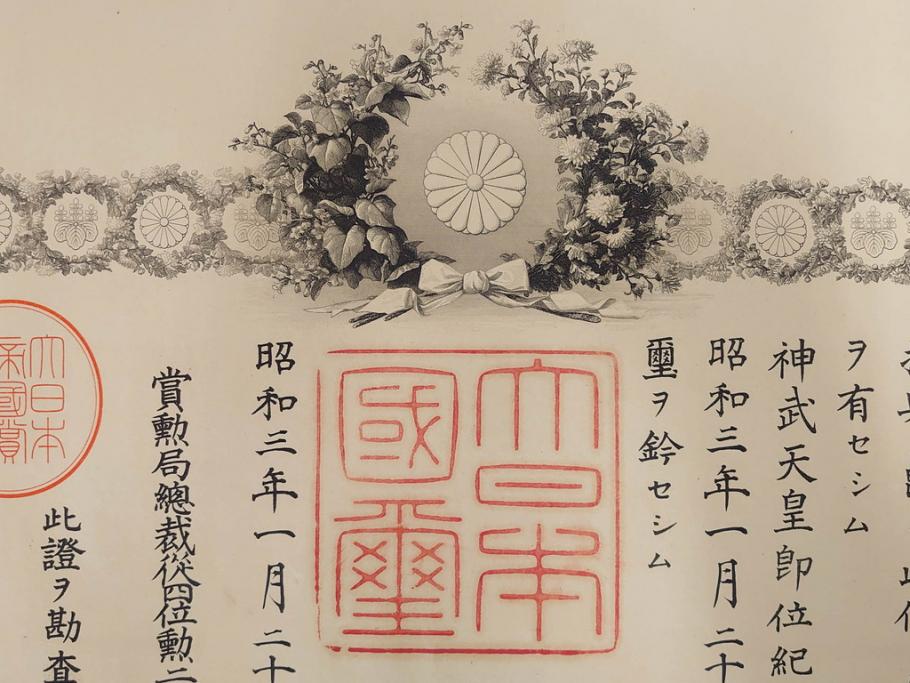 ヲ有セシム
神武天皇卽位紀
昭和三年一月二十
璽ヲ鈐セシム
大日本
國璽
昭和三年一月二十
賞勲局總裁從四位勲二
此證ヲ勘査
大日本
帝國賞